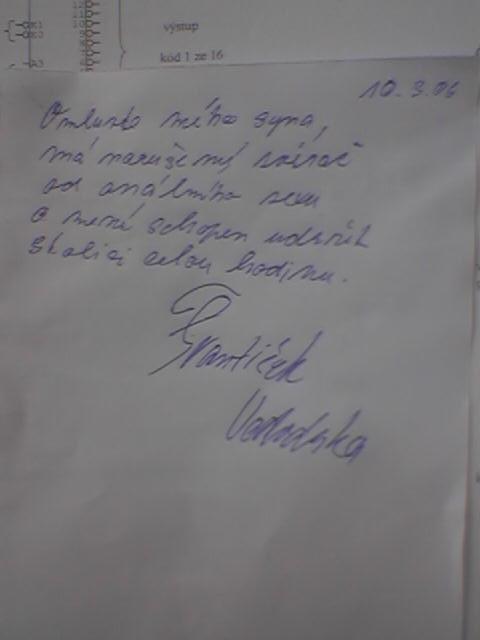 výstup
kód 1 ze 16
A3
10.3.06
Omluvte mého syna,
má narušený svěrač
od análního sexu
a není schopen udržet
stolici celou hodinu.
František